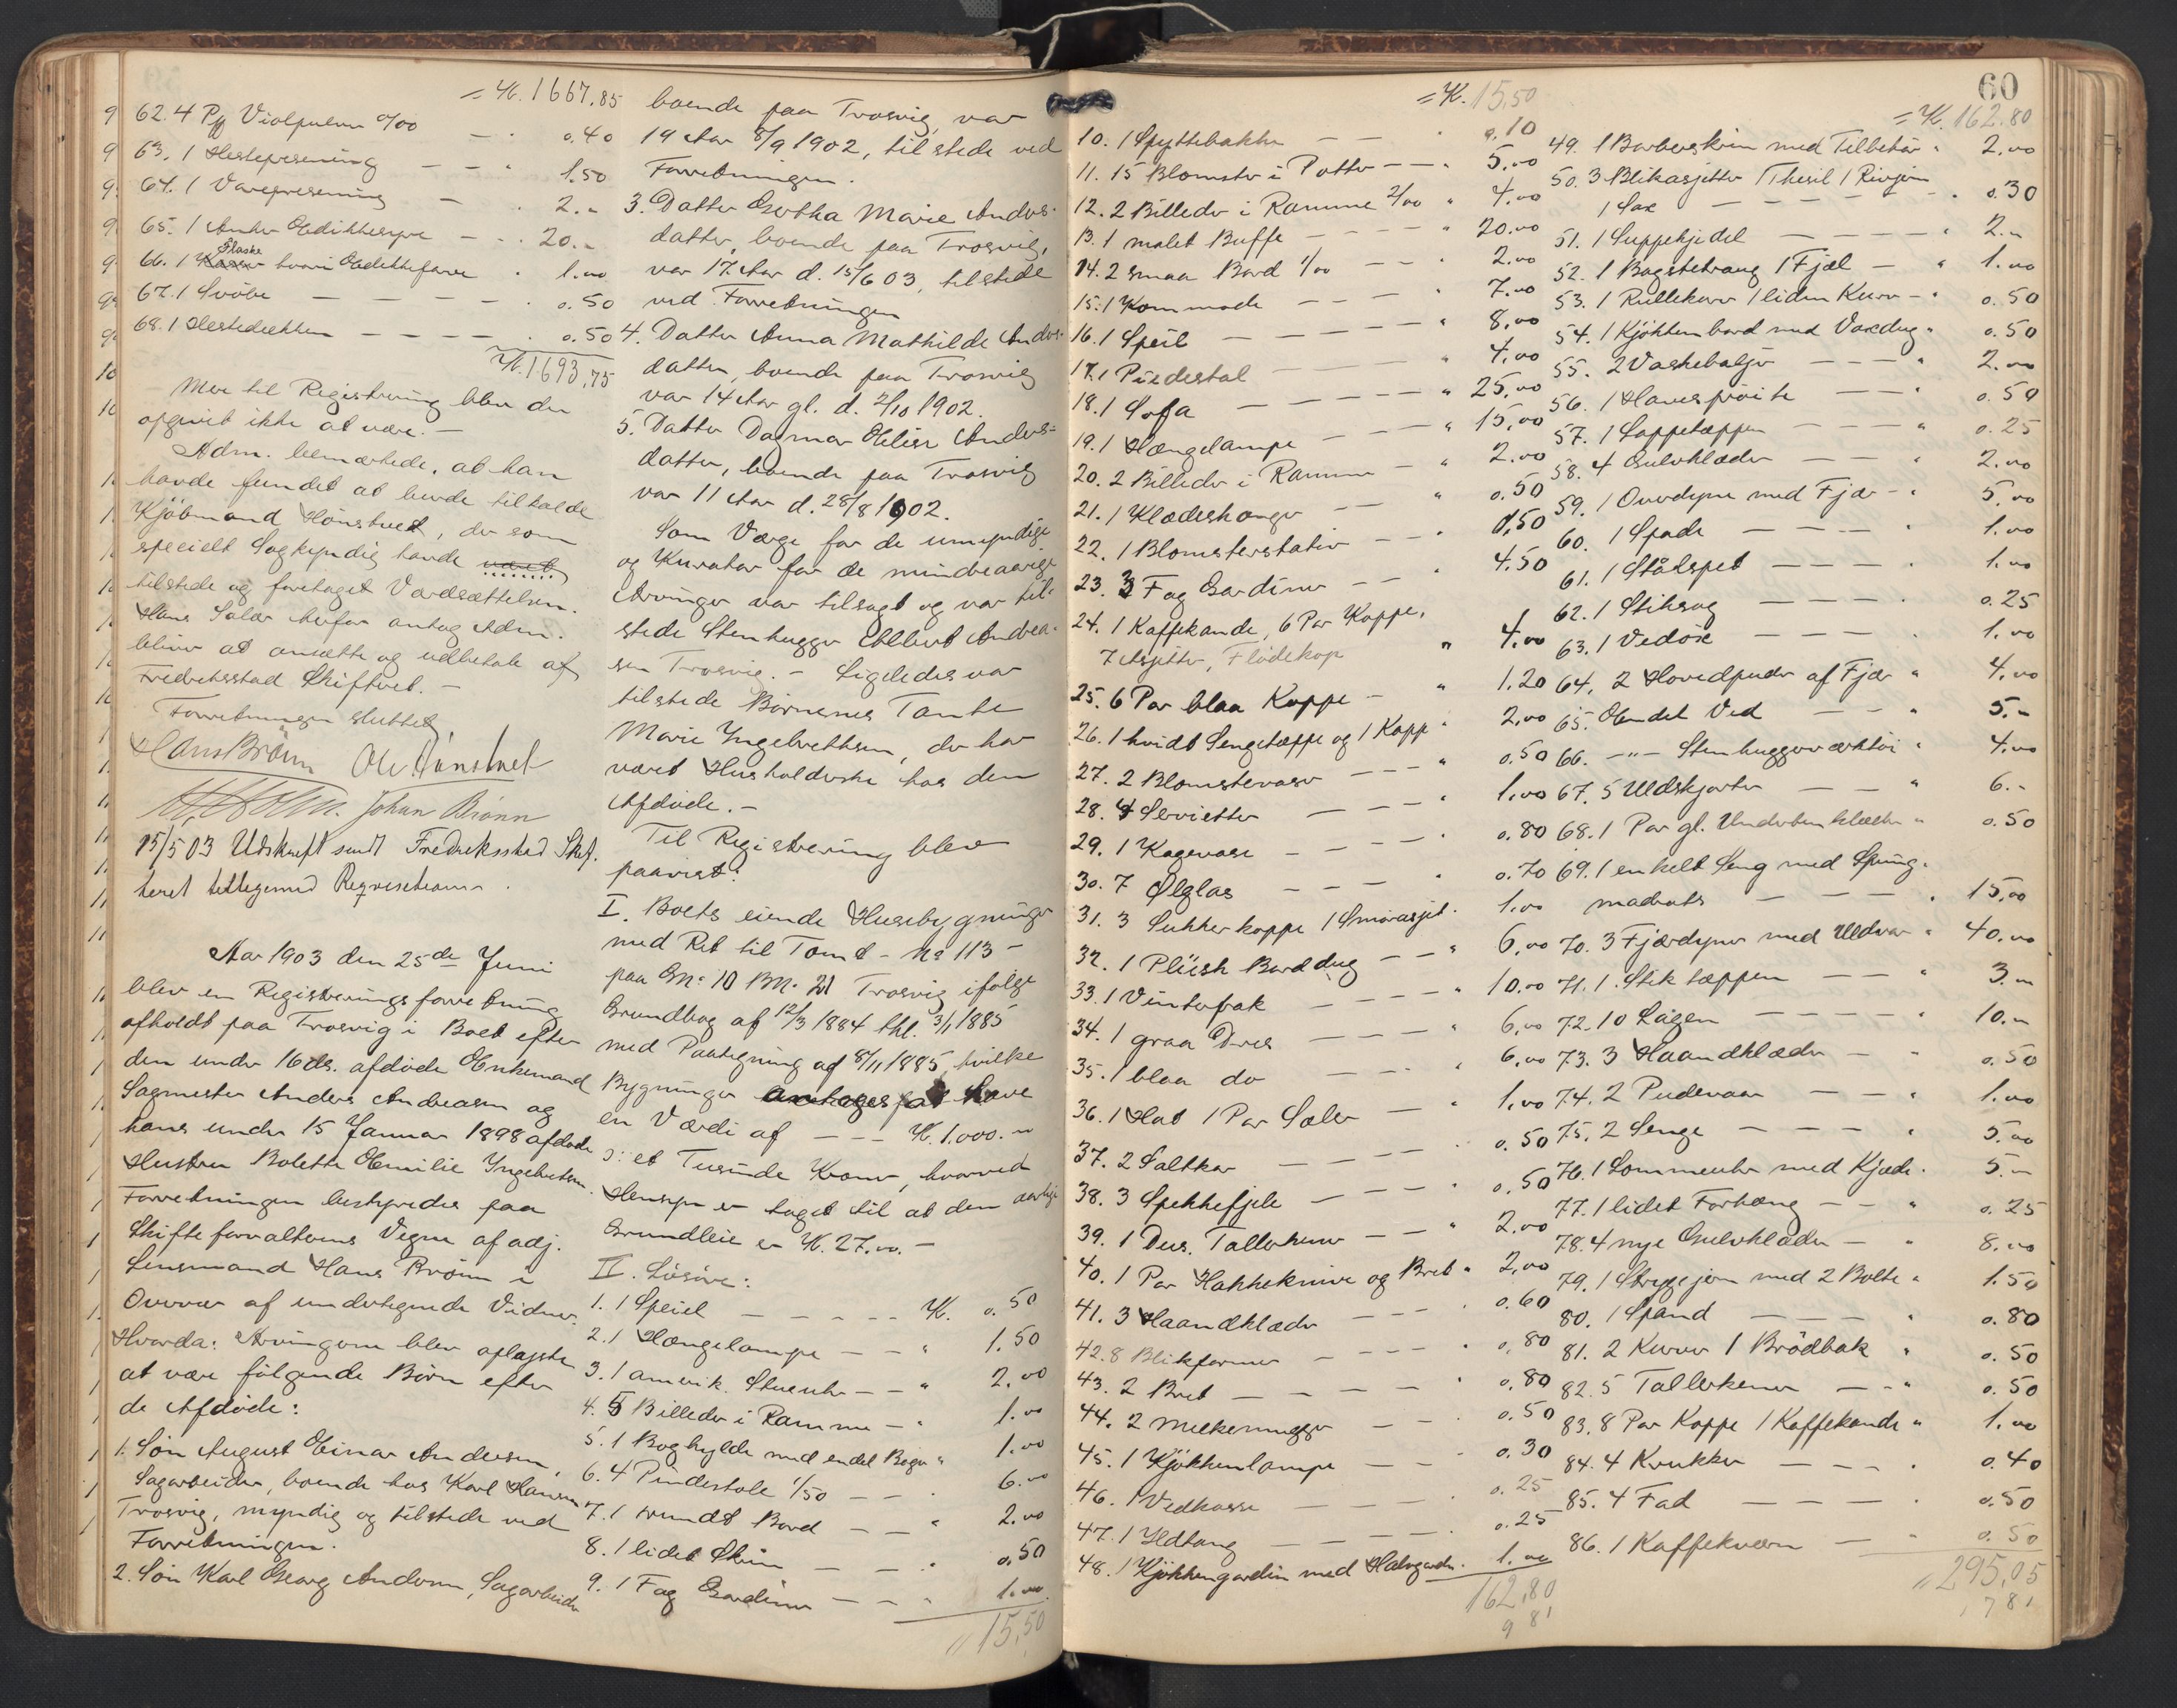 = K. 1667.85
62. 4 Pf Violpulver 0/00 - " 0.40
63. 1 Hestepresening - - " 1.50
64. 1 Varepresening - " 2.-
65. 1 Anker Eddikesprit - - " 20.-
66. 1 Flaske hvori Eddikefarve " 1.00
67. 1 Svøbe - - - - " 0.50
68. 1 Hestedækken - - - - " 0.50
K. 1693,75
Mer til Registrering blev der
opgivet ikke at være. -
Adm. bemærkede, at han
havde fundet at burde tilkalde
Kjöbmand Hönstvet, der som
specielt Sagkyndig havde været
tilstede og foretaget Værdsættelsen.
Hans Salær herfor antog Adm.
bliver at ansætte og udbetale af
Fredriksstad Skifteret. -
Forretningen sluttet,
Hans Brønn Ole Hönstvet
Holm. Johan Brønn
15/5 03 Udskrift sendt Fredriksstad Skif-
teret tilligemed Reqvisitionen.
Aar 1903 den 25de Juni
blev en Registreringsforretning
afholdt paa Trosvig i Boet efter
den under 16 ds. afdöde Enkemand
Sagmester Anders Andreasen og
hans under 15 Januar 1898 afdöde
Hustru Bolette Emilie Yngebretsen.
Forretningen bestyredes paa
Skifteforvalterens Vegne af adj.
Lensmand Hans Brönn i
Overvær af undertegnede Vidner.
Hvorda: Arvingerne blev oplyste
at være følgende Børn efter
de Afdöde:
1. Sön August Einar Andersen,
Sagarbeider, boende hos Karl Hansen
Trosvig, myndig og tilstede ved
Forretningen.
2. Sön Karl Georg Andersen, Sagarbeider
boende paa Trosvig, var
19 Aar 8/9 1902, tilstede ved
Forretningen.
3. Datter Gertha Marie Anders-
datter, boende paa Trosvig,
var 17 Aar d. 15/6 03, tilstede
ved Forretningen
4. Datter Anna Mathilde Anders-
datter, boende paa Trosvig
var 14 Aar gl. d. 2/10 1902.
5. Datter Dagmar Elise Anders-
datter, boende paa Trosvig
var 11 Aar d. 28/8 1902.
Som Værge for de umyndige
og Kurator for de mindreaarige
Arvinger var tilsagt og var til-
stede Stenhugger Ellert Andrea-
sen Trosvig. - Ligeledes var
tilstede Børnenes Tante
Marie Yngebrethsen, der har
været Husholderske hos den
Afdöde. -
Til Registrering blev
paavist:
I. Boets eiende Husebygninger
med Ret til Tomt - No 113 -
paa Gn: 10 Bn: 21 Trosvig ifølge
Grundbog af 12/3 1884 thl. 3/1 1885
med Paategning af 8/11 1885, hvilke
Bygninger antages at have
en Værdi af - - - K. 1.000.00
ɔ: et Tusinde Kroner, hvorved
Hensyn er taget til at den aarlige
Grundleie er K. 27.00. -
II. Lösöre:
1. 1 Speil - - - - - K. 0.50
2. 1 Hængelampe - - " 1.50
3. 1 amerik. Stueuhr - - " 2.00
4. 5 Billeder i Ramme - " 1.00
5. 1 Boghylde med endel Bøger " 1.00
6. 4 Pindestole 1/50 - - " 6.00
7. 1 rundt Bord - - " 2.00
8. 1 lidet Skrin - - - " 0.50
9. 1 Fag Gardiner - - - " 1.00
" 15,50
60
= K. 15,50
10. 1 Spyttebakke - - - " 0.10
11. 15 Blomster i Potter - - " 5.00
12. 2 Billeder i Ramme 2/00 " 4.00
13. 1 malet Buffe - - - - " 20.00
14. 2 smaa Bord 1/00 - - " 2.00
15. 1 Kommode - - - - " 7.00
16. 1 Speil - - - - - " 8.00
17. 1 Piedestal - - - - " 4.00
18. 1 Sofa - - - - - " 25.00
19. 1 Hængelampe - - - - " 15,00
20. 2 Billeder i Ramme - - " 2.00
21. 1 Klædeshenger - - " 0.50
22. 1 Blomsterstativ - - - " 0,50
23. 3 Fag Gardiner - - " 4.50
24. 1 Kaffekande, 6 Par Koppe,
7 Asjetter, Flödekop " 4.00
25. 6 Par blaa Koppe - " 1.20
26. 1 hvidt Sengetæppe og 1 Kopp " 2,00
27. 2 Blomstervaser - - - " 0.50
28. 4 Servietter - - - - " 1.00
29. 1 Kagevase - - - - " 0.80
30. 7 Ølglas - - - - " 0.70
31. 3 Sukkerkoppe 1 Smørasjet " 1.00
32. 1 Plüsh Borddug - - " 6,00
33. 1 Vinterfrak - - - - " 10.00
34. 1 graa Dres - - - - " 6,00
35. 1 blaa do - - - " 6,00
36. 1 Hat 1 Par Sæler - " 1.00
37. 2 Saltkar - - - - " 0.50
38. 3 Spekkefjele - - - - " 0.50
39. 1 Dus. Tallerkener - - " 2.00
40. 1 Par Hakkeknive og Bret " 2,00
41. 3 Haandklæder - - " 0.60
42. 8 Blikformer - - - - " 0,80
43. 2 Bret - - - - - " 0,80
44. 2 Melkemugger - - " 0.50
45. 1 Kjøkkenlampe - - " 0.30
46. 1 Vedkasse - - - - " 0.25
47. 1 Ildtang - - - - " 0.25
48. 1 Kjøkkengardin med Halvgardn. 1.00
162,80
9 81
= K. 162.80
49. 1 Barberskrin med Tilbehør " 2.00
50. 3 Blikasjetter 1 Thesil 1 Rivjern
1 Sax - - - - - " 0.30
51. 1 Suppekjedel - - - - " 2.-
52. 1 Bagstetraug 1 Fjæl - " 1.00
53. 1 Rullekurv 1 liden Kurv - " 0.50
54. 1 Kjökkenbord med Voxdug " 0.50
55. 2 Vaskebaljer - - - " 2.00
56. 1 Havesprøite - - " 0.50
57. 1 Lappetæppe - - - " 0.25
58. 4 Gulvklæder - - - " 2.00
59. 1 Overdyne med Fjær - " 5.00
60. 1 Spade - - - - " 1.00
61. 1 Stålspet - - - - " 1.00
62. 1 Stiksag - - - - " 0.25
63. 1 Vedöxe - - - - " 1.00
64. 2 Hovedpuder af Fjær " 4.00
65. Endel Ved - - " 5.-
66. -"- Stenhuggerværktöi " 4.00
67. 5 Uldskjorter - - " 6.-
68. 1 Par gl. Underbenklæder " 0.50
69. 1 enkelt Seng med Spring-
madrats - - - " 15,00
70. 3 Fjærdyner med Uldvar " 40.00
71. 1 Stiktæppen - - " 3.-
72. 10 Lagen - - - - " 10.-
73. 3 Haandklæder - " 0.50
74. 2 Pudevaar - - " 1.00
75. 2 Senge - - - - " 5.00
76. 1 Lommeuhr med Kjæde " 5.-
77. 1 lidet Forhæng - - " 0.25
78. 4 nye Gulvklæder - " 8.00
79. 1 Strygejern med 2 Bolte " 1.50
80. 1 Spand - - - - " 0.80
81. 2 Kurver 1 Brödbak " 0.50
82. 5 Tallerkener - - " 0.50
83. 8 Par Koppe 1 Kaffekande " 1.00
84. 4 Krukker - - - " 0.40
85. 4 Fad - - - - " 0.50
86. 1 Kaffekværn - - " 0.50
" 295,05
781